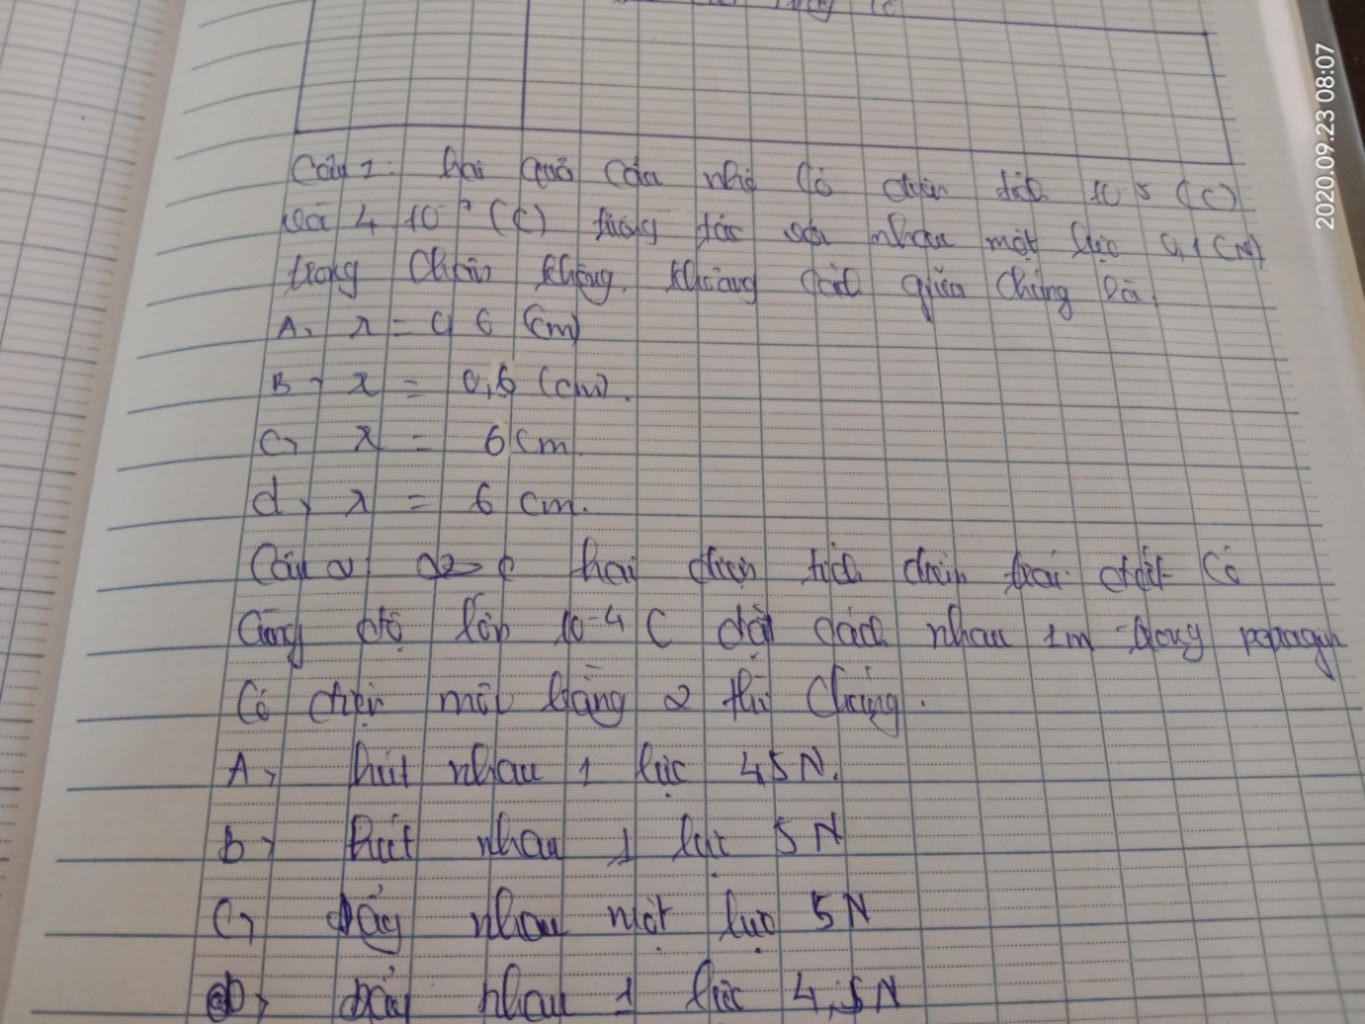 Câu 1: hai quả cầu nhỏ có điện tích 10 5 (C)
và 4 10 (C) tương tác với nhau một lực 0,1 (N)
trong chân không. khoảng cách giữa chúng là.
A, r = 0 6 (cm)
B, r = 0,6 (cm).
C, r = 6 cm.
d, r = 6 cm.
Câu 2: hai điện tích điểm trái dấu có
Cùng độ lớn 10-4 C đặt cách nhau 1m trong
Có điện môi bằng 2 thì chúng.
A, hút nhau 1 lực 45N.
b, hút nhau 1 lực 5N
C, đẩy nhau một lực 5N
D, đẩy nhau 1 lực 4,5N
2020.09.23 08:07